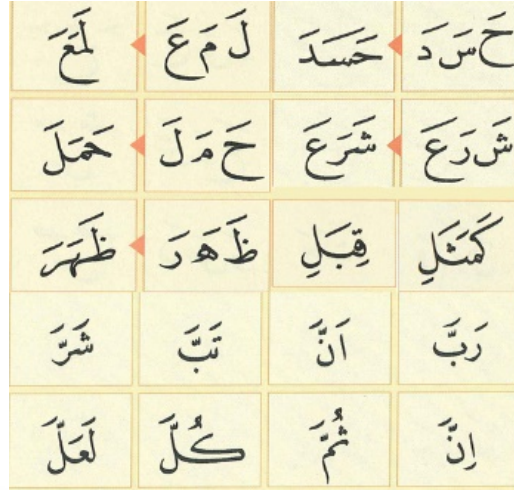 حَ سَ دَ حَسَدَ لَ مَ عَ لَمَعَ
شَ رَ عَ شَرَعَ حَ مَ لَ حَمَلَ
كَمَثَلِ قِبَلِ ظَ هَ رَ ظَهَرَ
رَبَّ اَنَّ تَبَّ شَرَّ
اِنَّ ثُمَّ كُلَّ لَعَلَّ